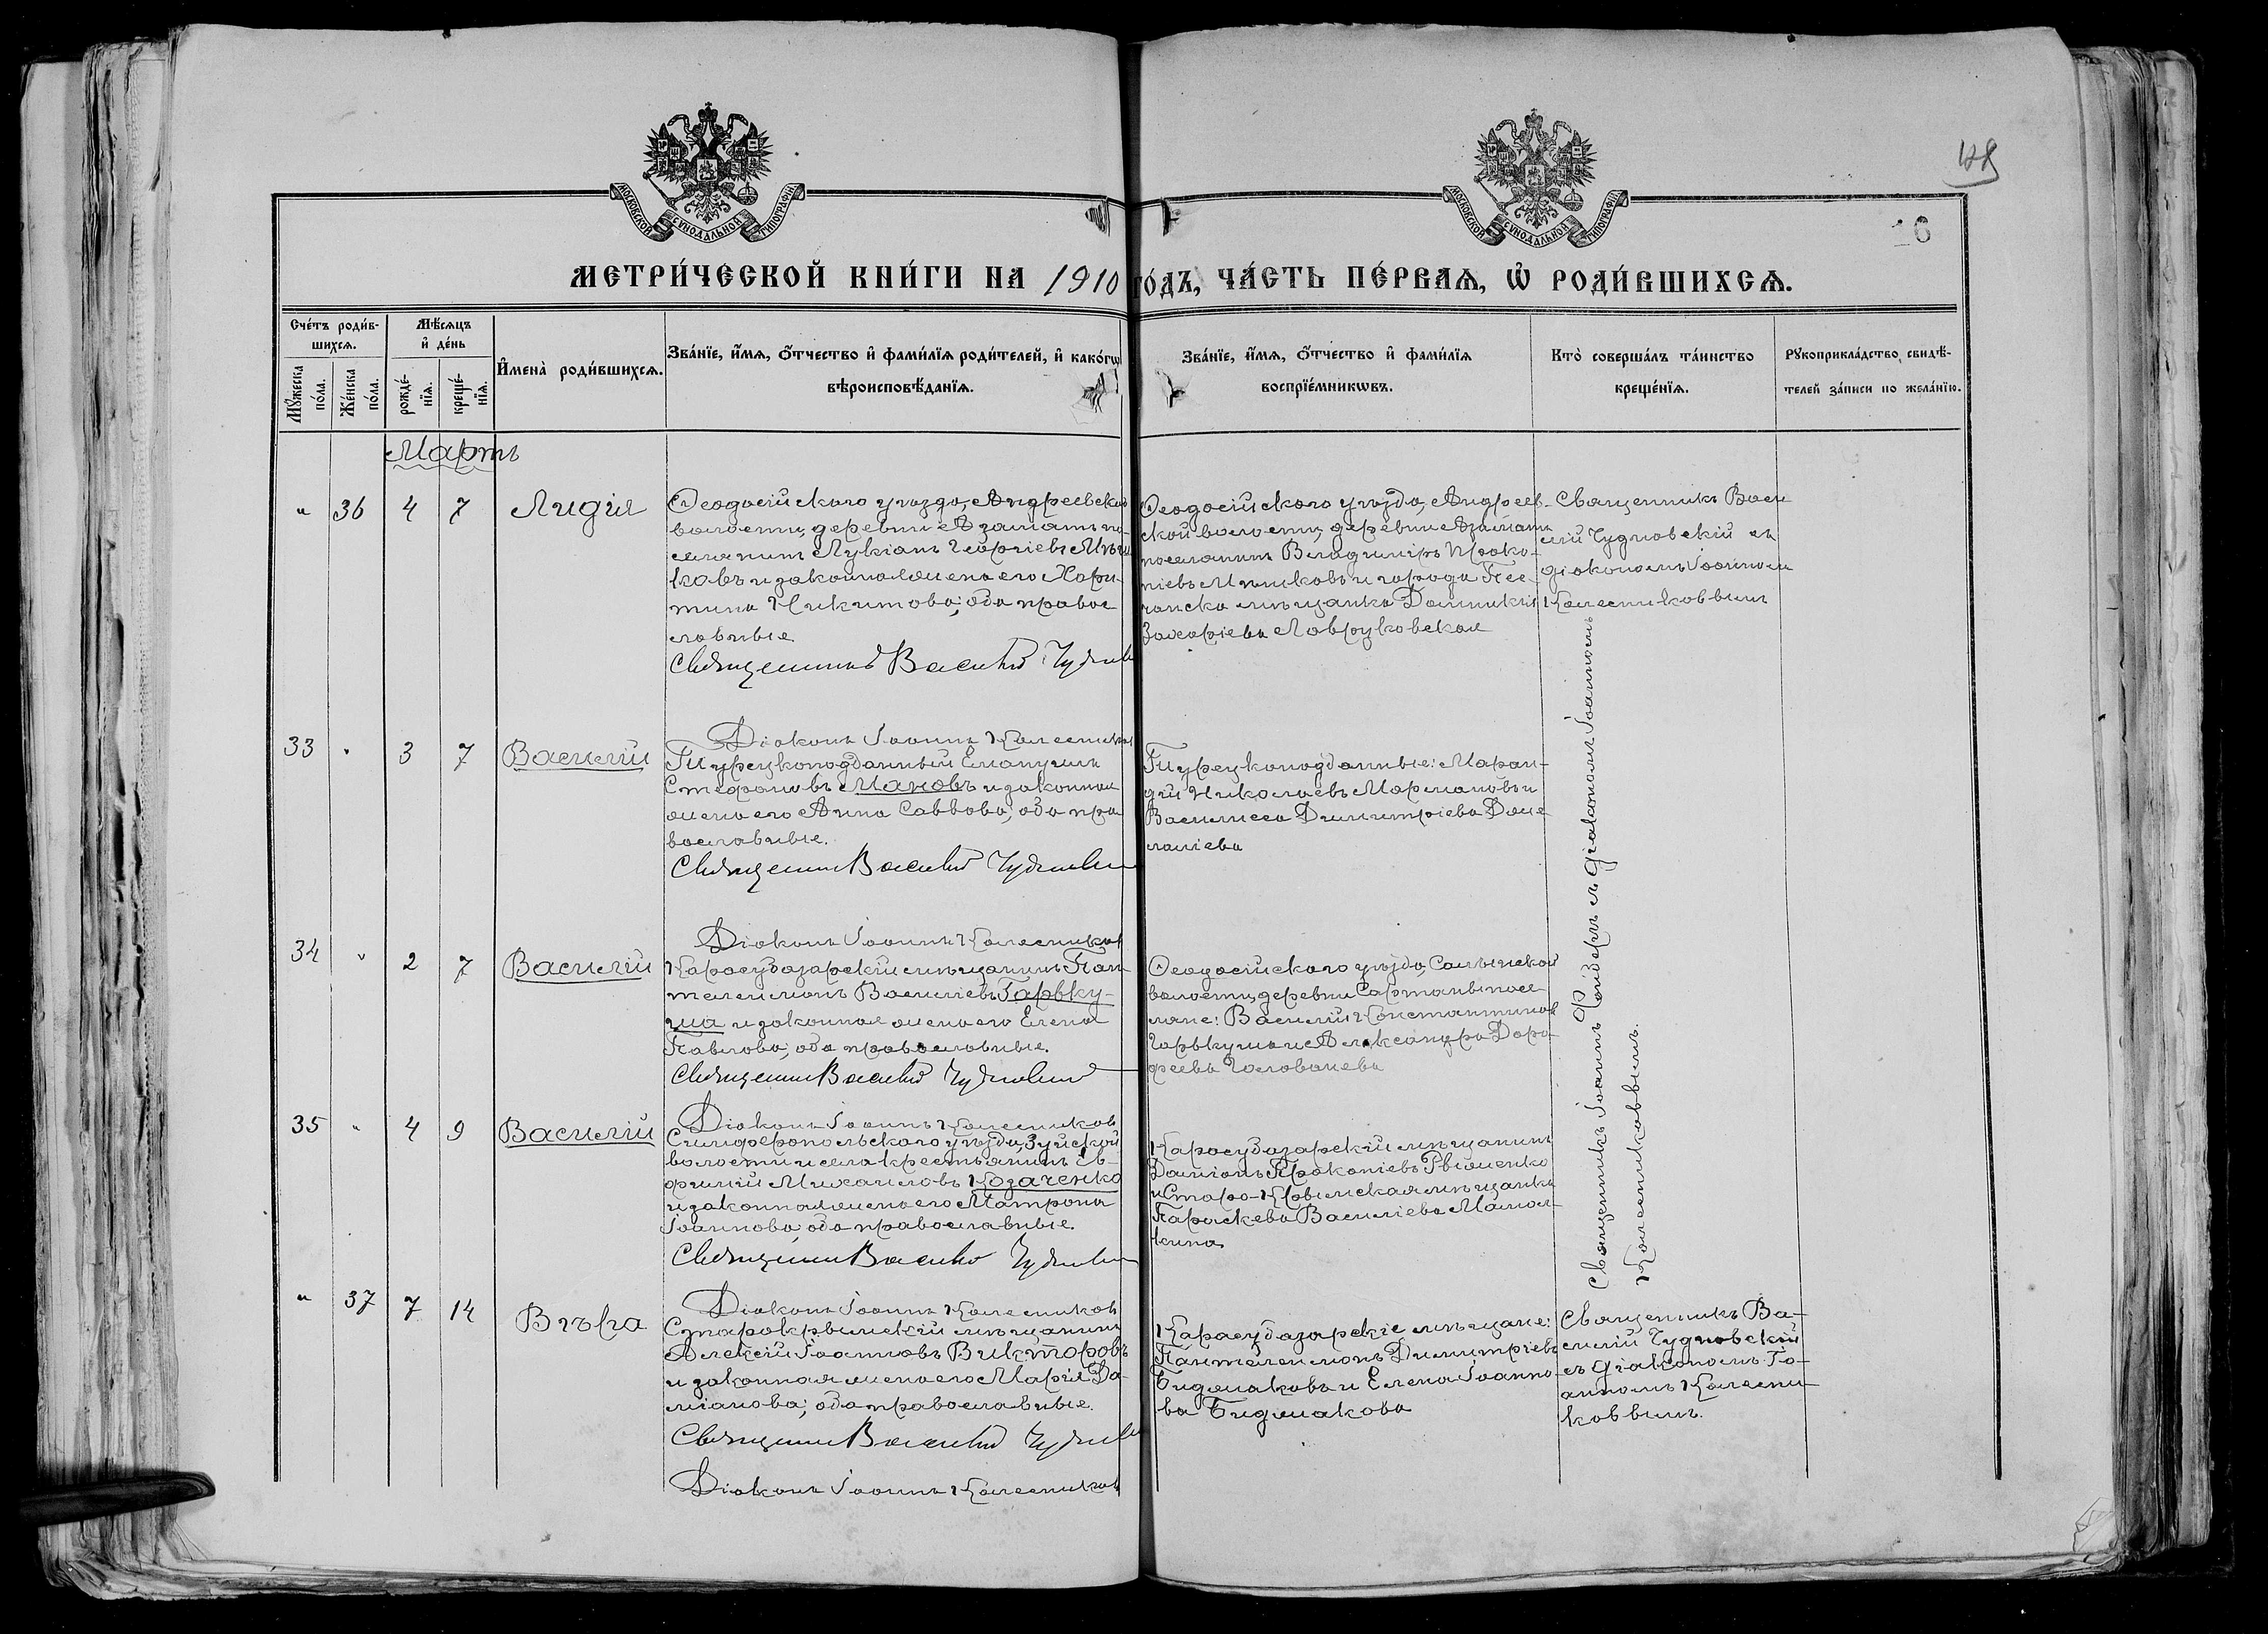 МОСКОВСКОЙ СѴНОДАЛЬНОЙ ТИПОГРАФІИ
МОСКОВСКОЙ СѴНОДАЛЬНОЙ ТИПОГРАФІИ
16
МЕТРИ́ЧЕСКОЙ КНИ́ГИ НА 1910 ГО́ДЪ, ЧА́СТЬ ПЕ́РВАѦ, Ѡ҆ РОДИ́ВШИХСѦ.
Сче́тъ роди́в-
шихсѧ.
Мꙋ́жеска
по́ла.
Же́нска
по́ла.
Мѣ́сѧцъ
и҆ де́нь
рожде́-
нїѧ.
креще́-
нїѧ.
И҆мена̀ роди́вшихсѧ.
Зва́нїе, и҆́мѧ, ѻ҆́тчество и҆ фами́лїѧ роди́телей, и҆ како́гѡ
вѣроисповѣ́данїѧ.
Зва́нїе, и҆́мѧ, ѻ҆́тчество и҆ фами́лїѧ
воспрїе́мникѡвъ.
Кто̀ соверша́лъ та́инство
креще́нїѧ.
Рꙋкоприкла́дство свидѣ́-
телей за́писи по жела́нїю.
Мартъ
" 36 4 7 Лидія
Ѳеодосійскаго уѣзда, Андреевской
волости, деревни посе-
лянинъ Лукіанъ Георгіевъ Мѣш-
ковъ и законная жена его Хари-
тина Никитова; оба правос
лавные.
Священникъ Василій Чудновскій
Діаконъ Іоаннъ Колесниковъ
Ѳеодосійскаго уѣзда, Андреев-
ской волости, деревни
поселянинъ Владиміръ Проко-
піевъ Мѣшковъ и города
мѣщанка Домникія
Захаріева Лавруковская
Священникъ Васи
лій Чудновскій съ
діакономъ Іоанномъ
Колесниковымъ
33 " 3 7 Василій
Турецкоподданный Емануилъ
Стефановъ Мановъ и законная
жена его Анна Саввова; оба пра
вославные.
Священникъ Василій Чудновскій
Діаконъ Іоаннъ Колесниковъ
Турецкоподданные:
Николаевъ Мармановъ и
Василиса Димитріева
34 " 2 7 Василій
Карасубазарскій мѣщанинъ Пан-
телеимонъ Василіевъ Горьку-
ша и законная жена его Елена
Павлова; оба православные.
Священникъ Василій Чудновскій
Діаконъ Іоаннъ Колесниковъ
Ѳеодосійскаго уѣзда, Салынской
волости, деревни Сартаны посе-
ляне: Василій Константиновъ
Горькуша и Александра Доро-
феева Голованева
Священникъ Іоаннъ съ діакономъ Іоанномъ
Колесниковымъ.
35 " 4 9 Василій
Симферопольскаго уѣзда, Зуйской
волости и села крестьянинъ Ев-
фимій Михаиловъ Козаченко
и законная жена его Матрона
Іоаннова; оба православные.
Священникъ Василій Чудновскій
Діаконъ Іоаннъ Колесниковъ
Карасубазарскій мѣщанинъ
Даміанъ Прокопіевъ
и Старо-Крымская мѣщанка
Параскева Василіева
" 37 7 14 Вѣра
Старокрымскій мѣщанинъ
Алексій Іоанновъ Викторовъ
и законная жена его Марія Да-
міанова; оба православные.
Священникъ Василій Чудновскій
Діаконъ Іоаннъ Колесниковъ
Карасубазарскіе мѣщане:
Пантелеимонъ Димитріевъ
Бидмаковъ и Елена Іоанно-
ва Бидмакова
Священникъ Ва-
силій Чудновскій
съ діакономъ Іо-
анномъ Колесни-
ковымъ.